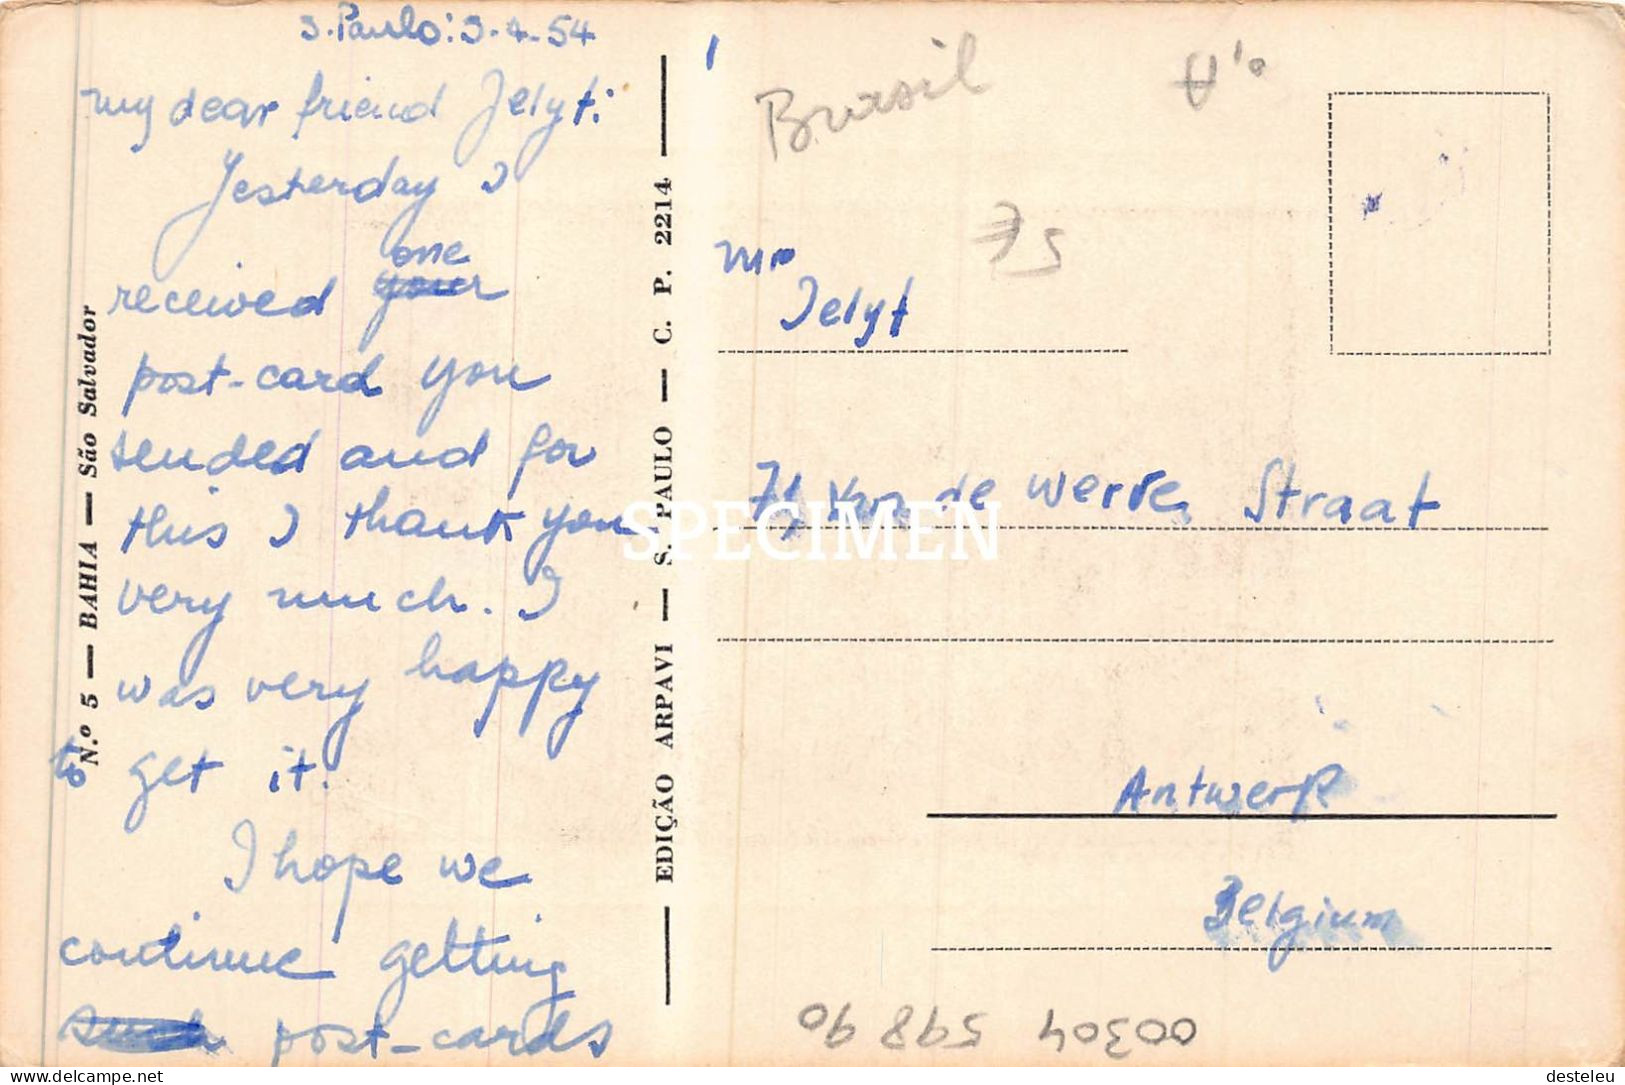 S. Paulo: 3-4-54
my dear friend Jelyt:
Yesterday I
one
received your
post-card you
sended and for
this I thank you
very much. I
was very happy
to get it.
I hope we
continue getting
such post-cards
N.º 5 — BAHIA — São Salvador
EDIÇÃO ARPAVI — S. PAULO — C. P. 2214
Brasil
75
Mr
Jelyt
71 de werve Straat
Antwerp
Belgium
00304 598 90
SPECIMEN
www.delcampe.net
desteleu